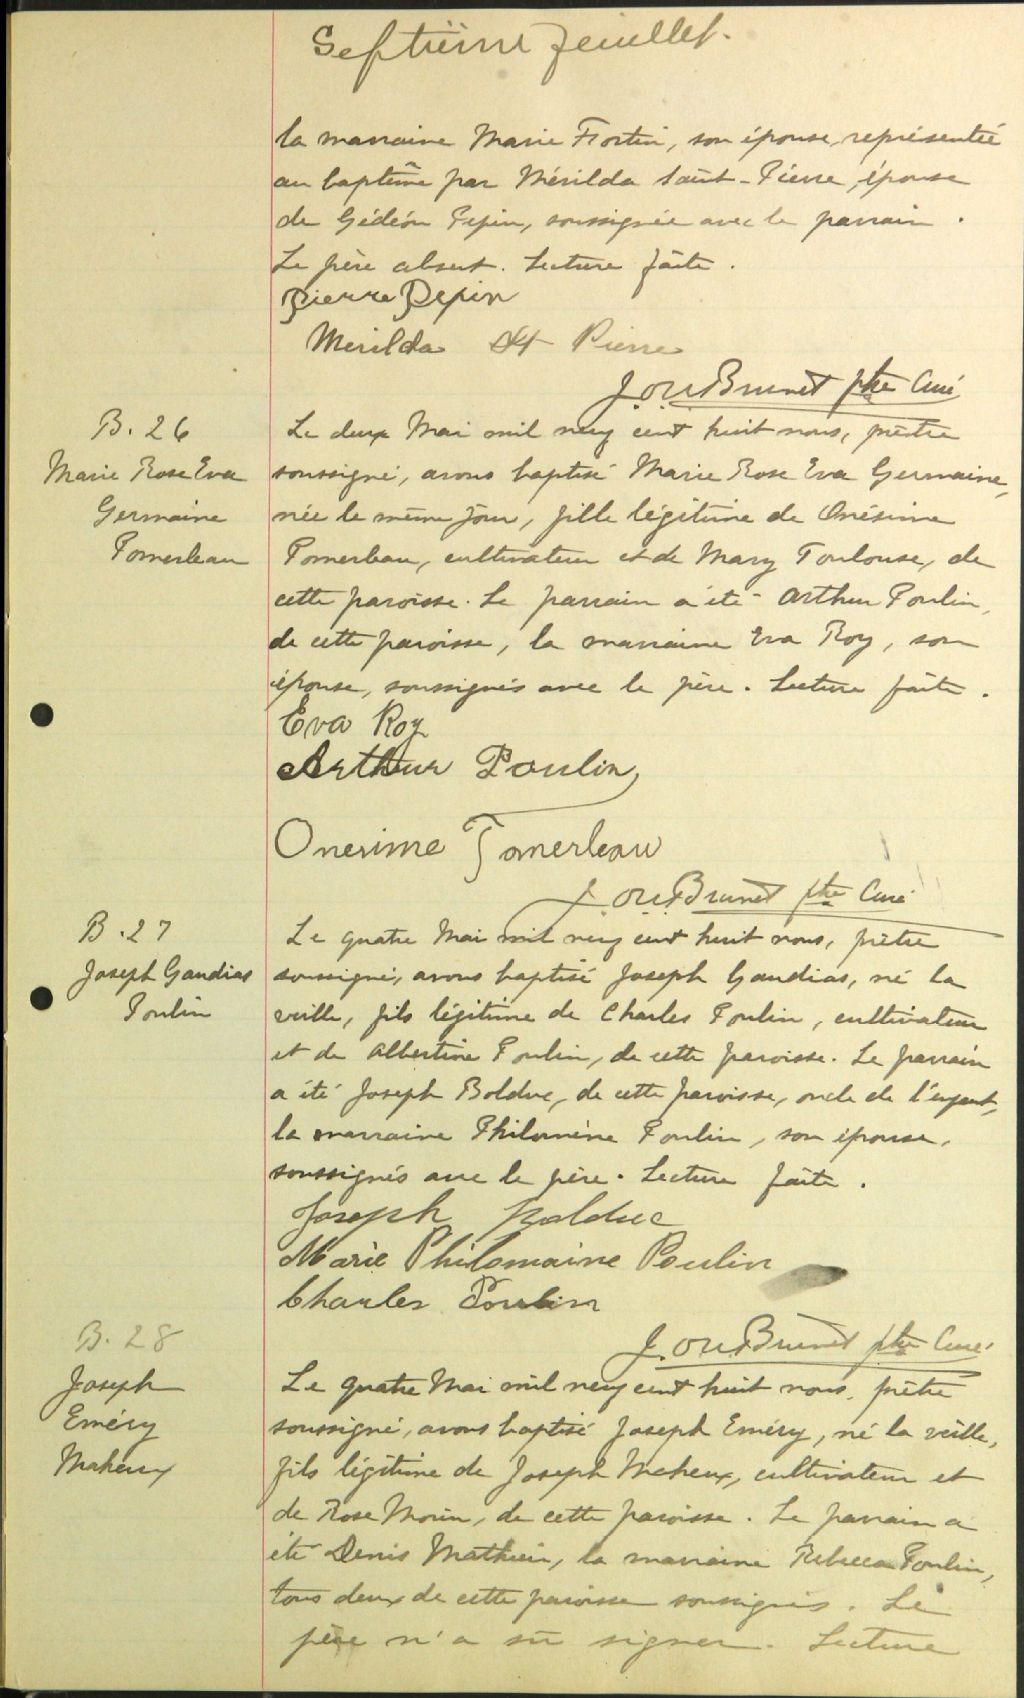 Septième feuillet.
la marraine Marie Fortin, son épouse, représentée
au baptême par Mérilda Saint-Pierre, épouse
de Gédéon Pepin, soussignée avec le parrain.
Le père absent. Lecture faite.
Pierre Pepin
Merilda St Pierre
J. Brunet ptre Curé
B. 26
Marie Rose Eva
Germaine
Pomerleau
Le deux Mai mil neuf cent huit nous, prêtre
soussigné, avons baptisé Marie Rose Eva Germaine,
née le même jour, fille légitime de Onésime
Pomerleau, cultivateur et de Mary Toulouse, de
cette paroisse. Le parrain a été Arthur Poulin,
de cette paroisse, la marraine Eva Roy, son
épouse, soussignés avec le père. Lecture faite.
Eva Roy
Arthur Poulin
Onesime Pomerleau
J. Brunet ptre Curé
B. 27
Joseph Gaudias
Poulin
Le quatre Mai mil neuf cent huit nous, prêtre
soussigné, avons baptisé Joseph Gaudias, né la
veille, fils légitime de Charles Poulin, cultivateur
et de Albertine Poulin, de cette paroisse. Le parrain
a été Joseph Bolduc, de cette paroisse, oncle de l'enfant,
la marraine Philomène Poulin, son épouse,
soussignés avec le père. Lecture faite.
Joseph Bolduc
Marie Philomaine Poulin
Charles Poulin
J. Brunet ptre Curé
B. 28
Joseph
Eméry
Maheux
Le quatre Mai mil neuf cent huit nous, prêtre
soussigné, avons baptisé Joseph Eméry, né la veille,
fils légitime de Joseph Maheux, cultivateur et
de Rose Morin, de cette paroisse. Le parrain a
été Denis Mathieu, la marraine Rebecca Poulin,
tous deux de cette paroisse soussignés. Le
père n'a su signer. Lecture